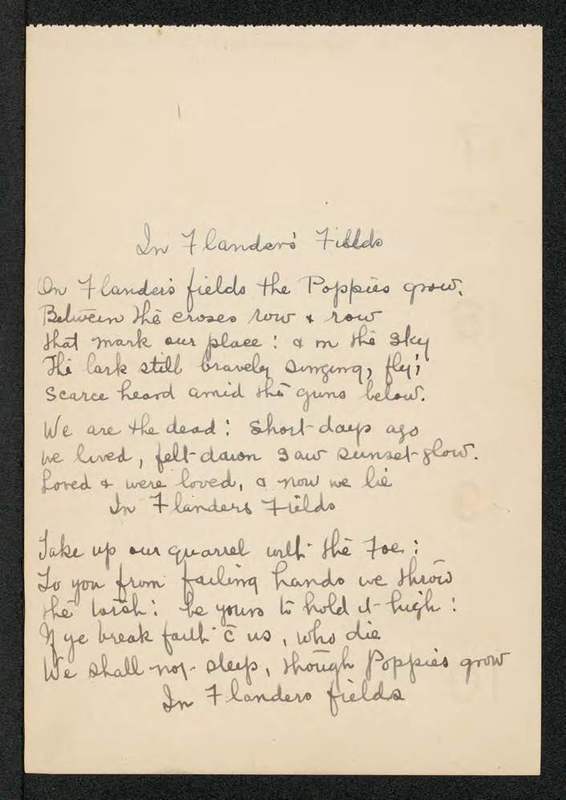 In Flanders' Fields
On Flanders fields the Poppies grow.
Between the croses row & row
that mark our place: & in the sky
The lark still bravely singing, fly;
Scarce heard amid the guns below.
We are the dead: Short days ago
we lived, felt dawn saw sunset glow.
Loved & were loved, & now we lie
In Flanders Fields
Take up our quarrel with the Foe:
To you from failing hands we throw
the torch: be yours to hold it high:
If ye break faith c̄ us, who die
We shall not sleep, though Poppies grow
In Flanders fields